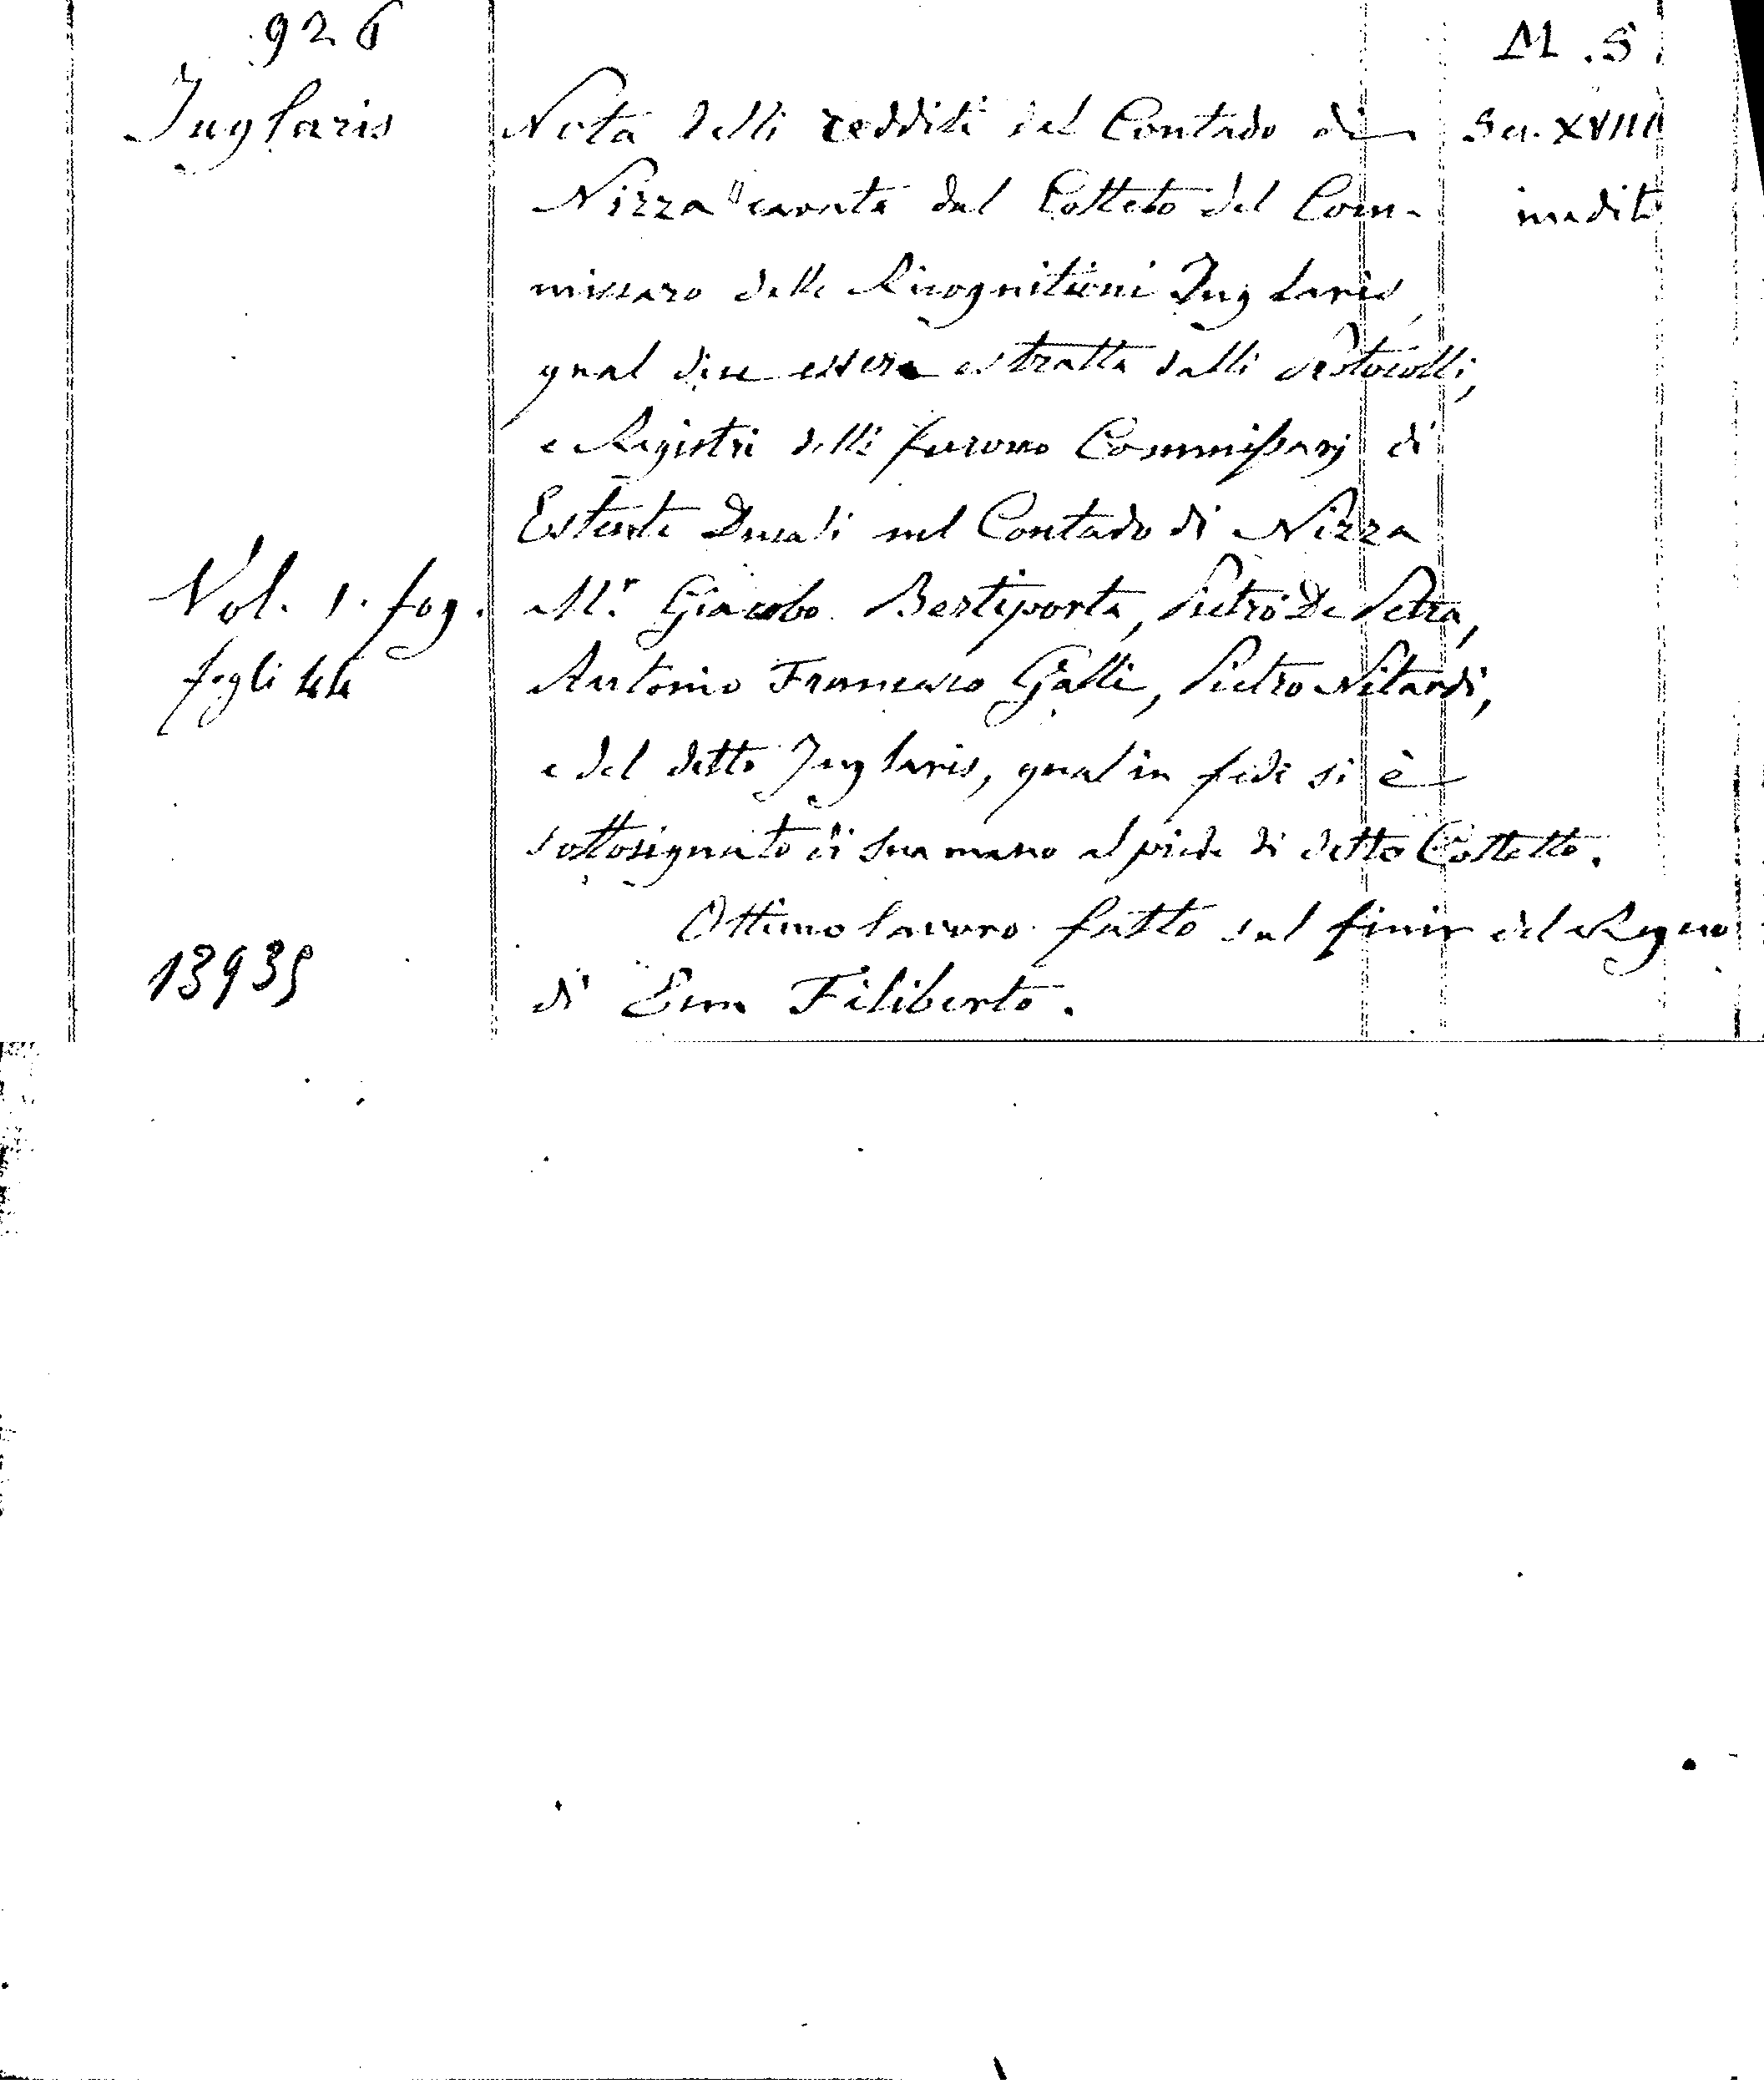 926
M.S.
Juglaris
Nota delli redditi del Contado di
Sec. XVIII
Nizza cavata dal Cotteto del Com-
inedito
missaro delle Ricognitioni Juglaris,
qual dice essere estratta dalli Protocolli,
e Registri delli furono Commissarj di
Estente Ducali nel Contado di Nizza
Vol. 1. fog.
M.r Giacobo Bestiporta, Pietro De Petra,
fogli 44
Antonio Francesco Galli, Pietro Nitardi,
e del detto Juglaris, qual in fede si è
sottosignato di sua mano al piede di detto Cottetto.
Ottimo lavoro fatto sul finir del Regno
13935
di Em Filiberto.